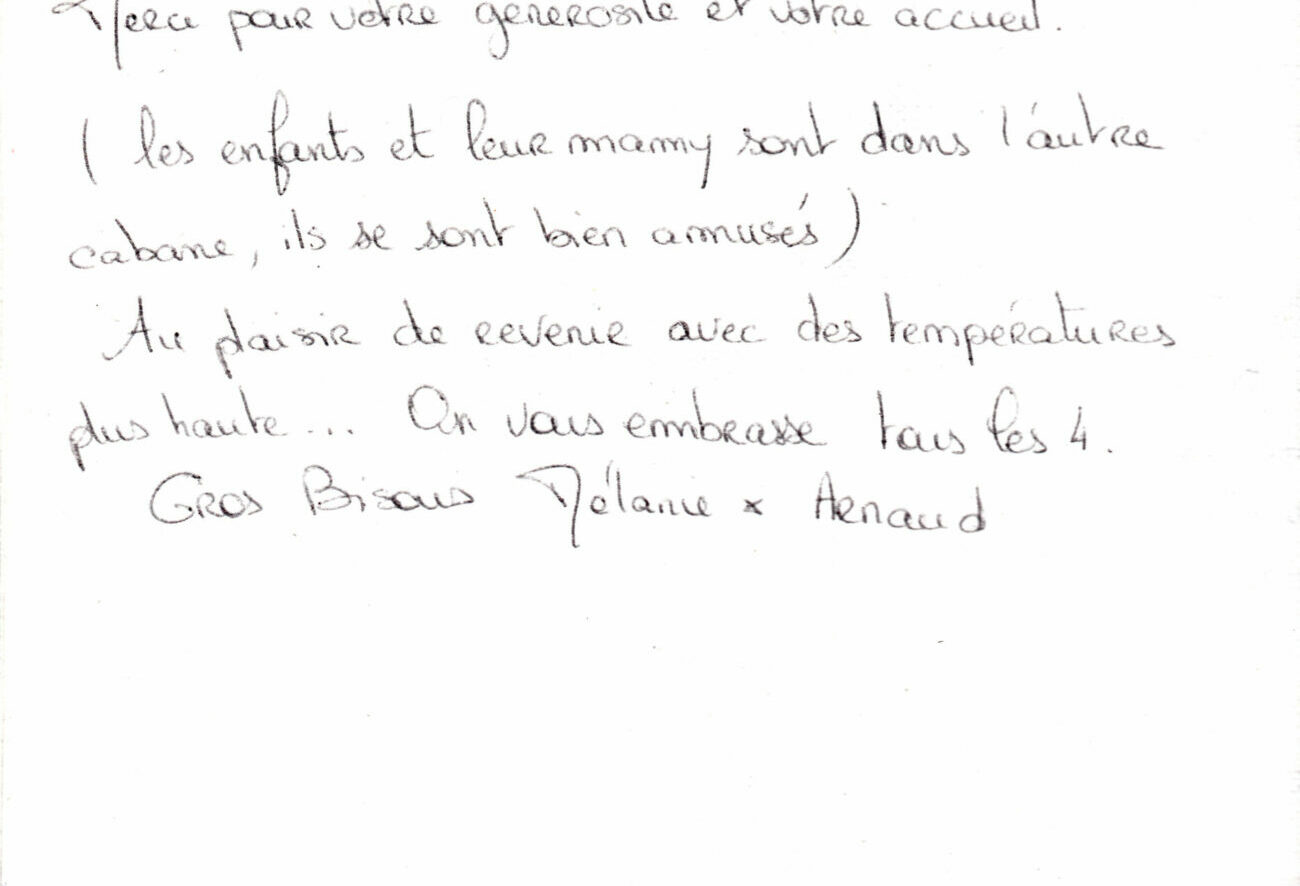 Merci pour votre générosité et votre accueil.
( les enfants et leur mamy sont dans l'autre
cabane, ils se sont bien amusés )
Au plaisir de revenir avec des températures
plus haute... On vous embrasse tous les 4.
Gros Bisous Mélanie x Arnaud